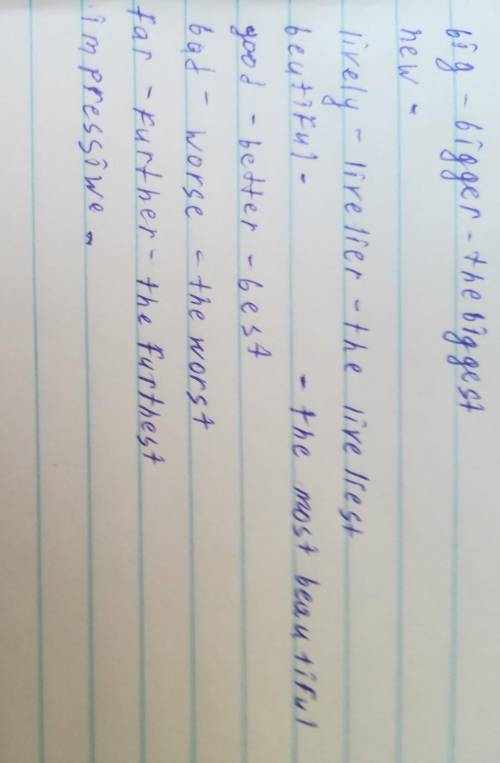 big - bigger - the biggest
new -
lively - livelier - the liveliest
beutiful - - the most beautiful
good - better - best
bad - worse - the worst
far - further - the furthest
impressiwe -